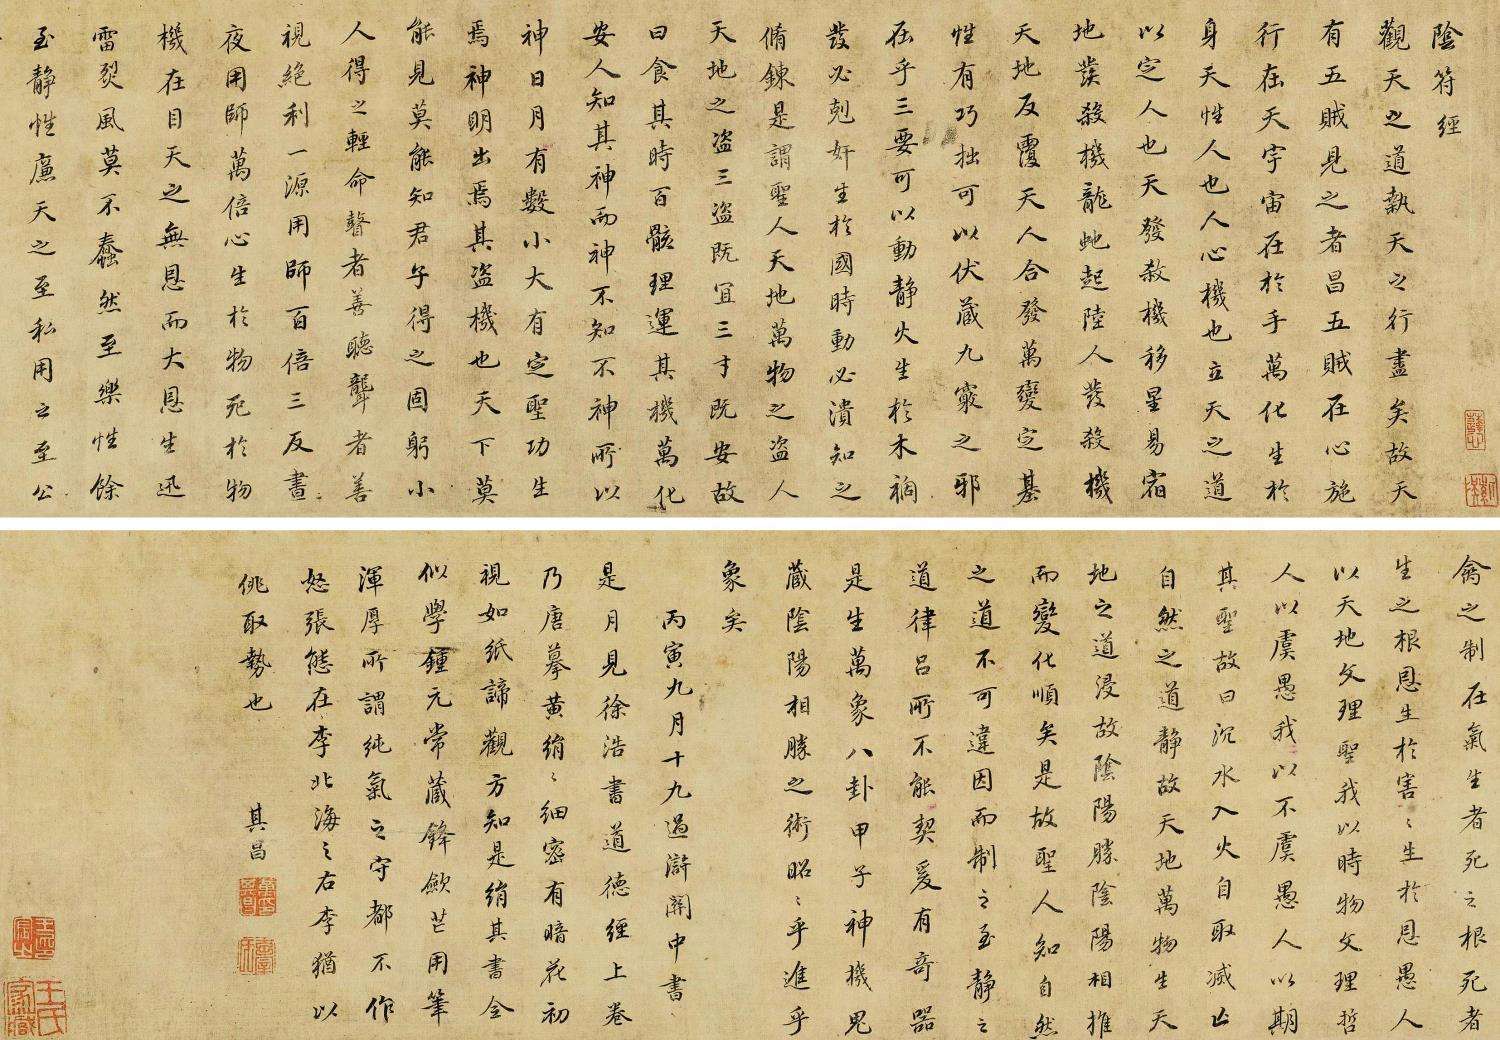 陰符經
觀天之道執天之行盡矣故天
有五賊見之者昌五賊在心施
行在天宇宙在於手萬化生於
身天性人也人心機也立天之道
以定人也天發殺機移星易宿
地發殺機龍蛇起陸人發殺機
天地反覆天人合發萬變定基
性有巧拙可以伏藏九竅之邪
在乎三要可以動靜火生於木禍
發必剋奸生於國時動必潰知之
脩鍊是謂聖人天地萬物之盜人
天地之盜三盜既宜三才既安故
曰食其時百骸理運其機萬化
安人知其神而神不知不神所以
神日月有數小大有定聖功生
焉神明出焉其盜機也天下莫
能見莫能知君子得之固躬小
人得之輕命瞽者善聽聾者善
視絕利一源用師百倍三反晝
夜用師萬倍心生於物死於物
機在目天之無恩而大恩生迅
雷裂風莫不蠢然至樂性餘
至靜性廉天之至私用之至公
禽之制在氣生者死之根死者
生之根恩生於害〻生於恩愚人
以天地文理聖我以時物文理哲
人以虞愚我以不虞愚人以期
其聖故曰沉水入火自取滅亡
自然之道靜故天地萬物生天
地之道浸故陰陽勝陰陽相推
而變化順矣是故聖人知自然
之道不可違因而制之至靜之
道律呂所不能契爰有奇器
是生萬象八卦甲子神機鬼
藏陰陽相勝之術昭〻乎進乎
象矣
丙寅九月十九過滸關中書
是月見徐浩書道德經上卷
乃唐摹黃絹〻細密有暗花初
視如紙諦觀方知是絹其書全
似學鍾元常藏鋒歛芒用筆
渾厚所謂純氣之守都不作
怒張態在李北海之右李猶以
佻取勢也
其昌